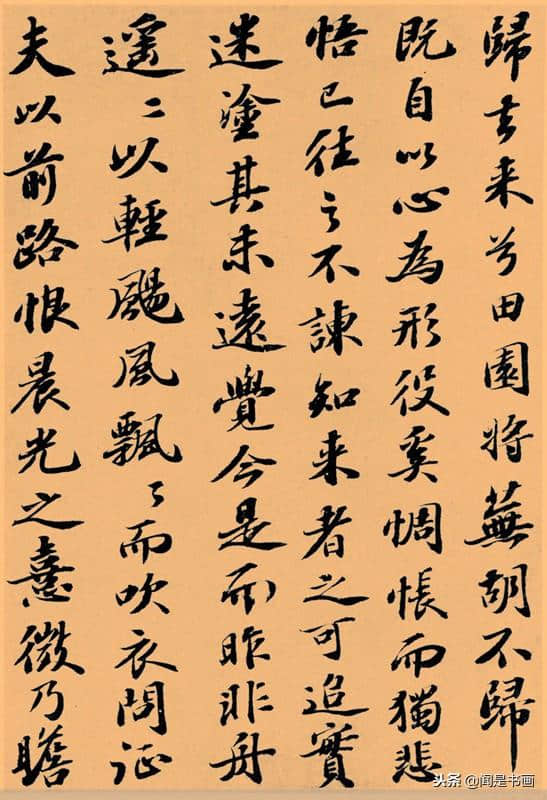 歸去来兮田園将蕪胡不歸
既自以心為形役奚惆悵而獨悲
悟已往之不諫知来者之可追實
迷塗其未遠覺今是而昨非舟
遥〻以輕颺風飄〻而吹衣問征
夫以前路恨晨光之熹微乃瞻
头条 @闻是书画